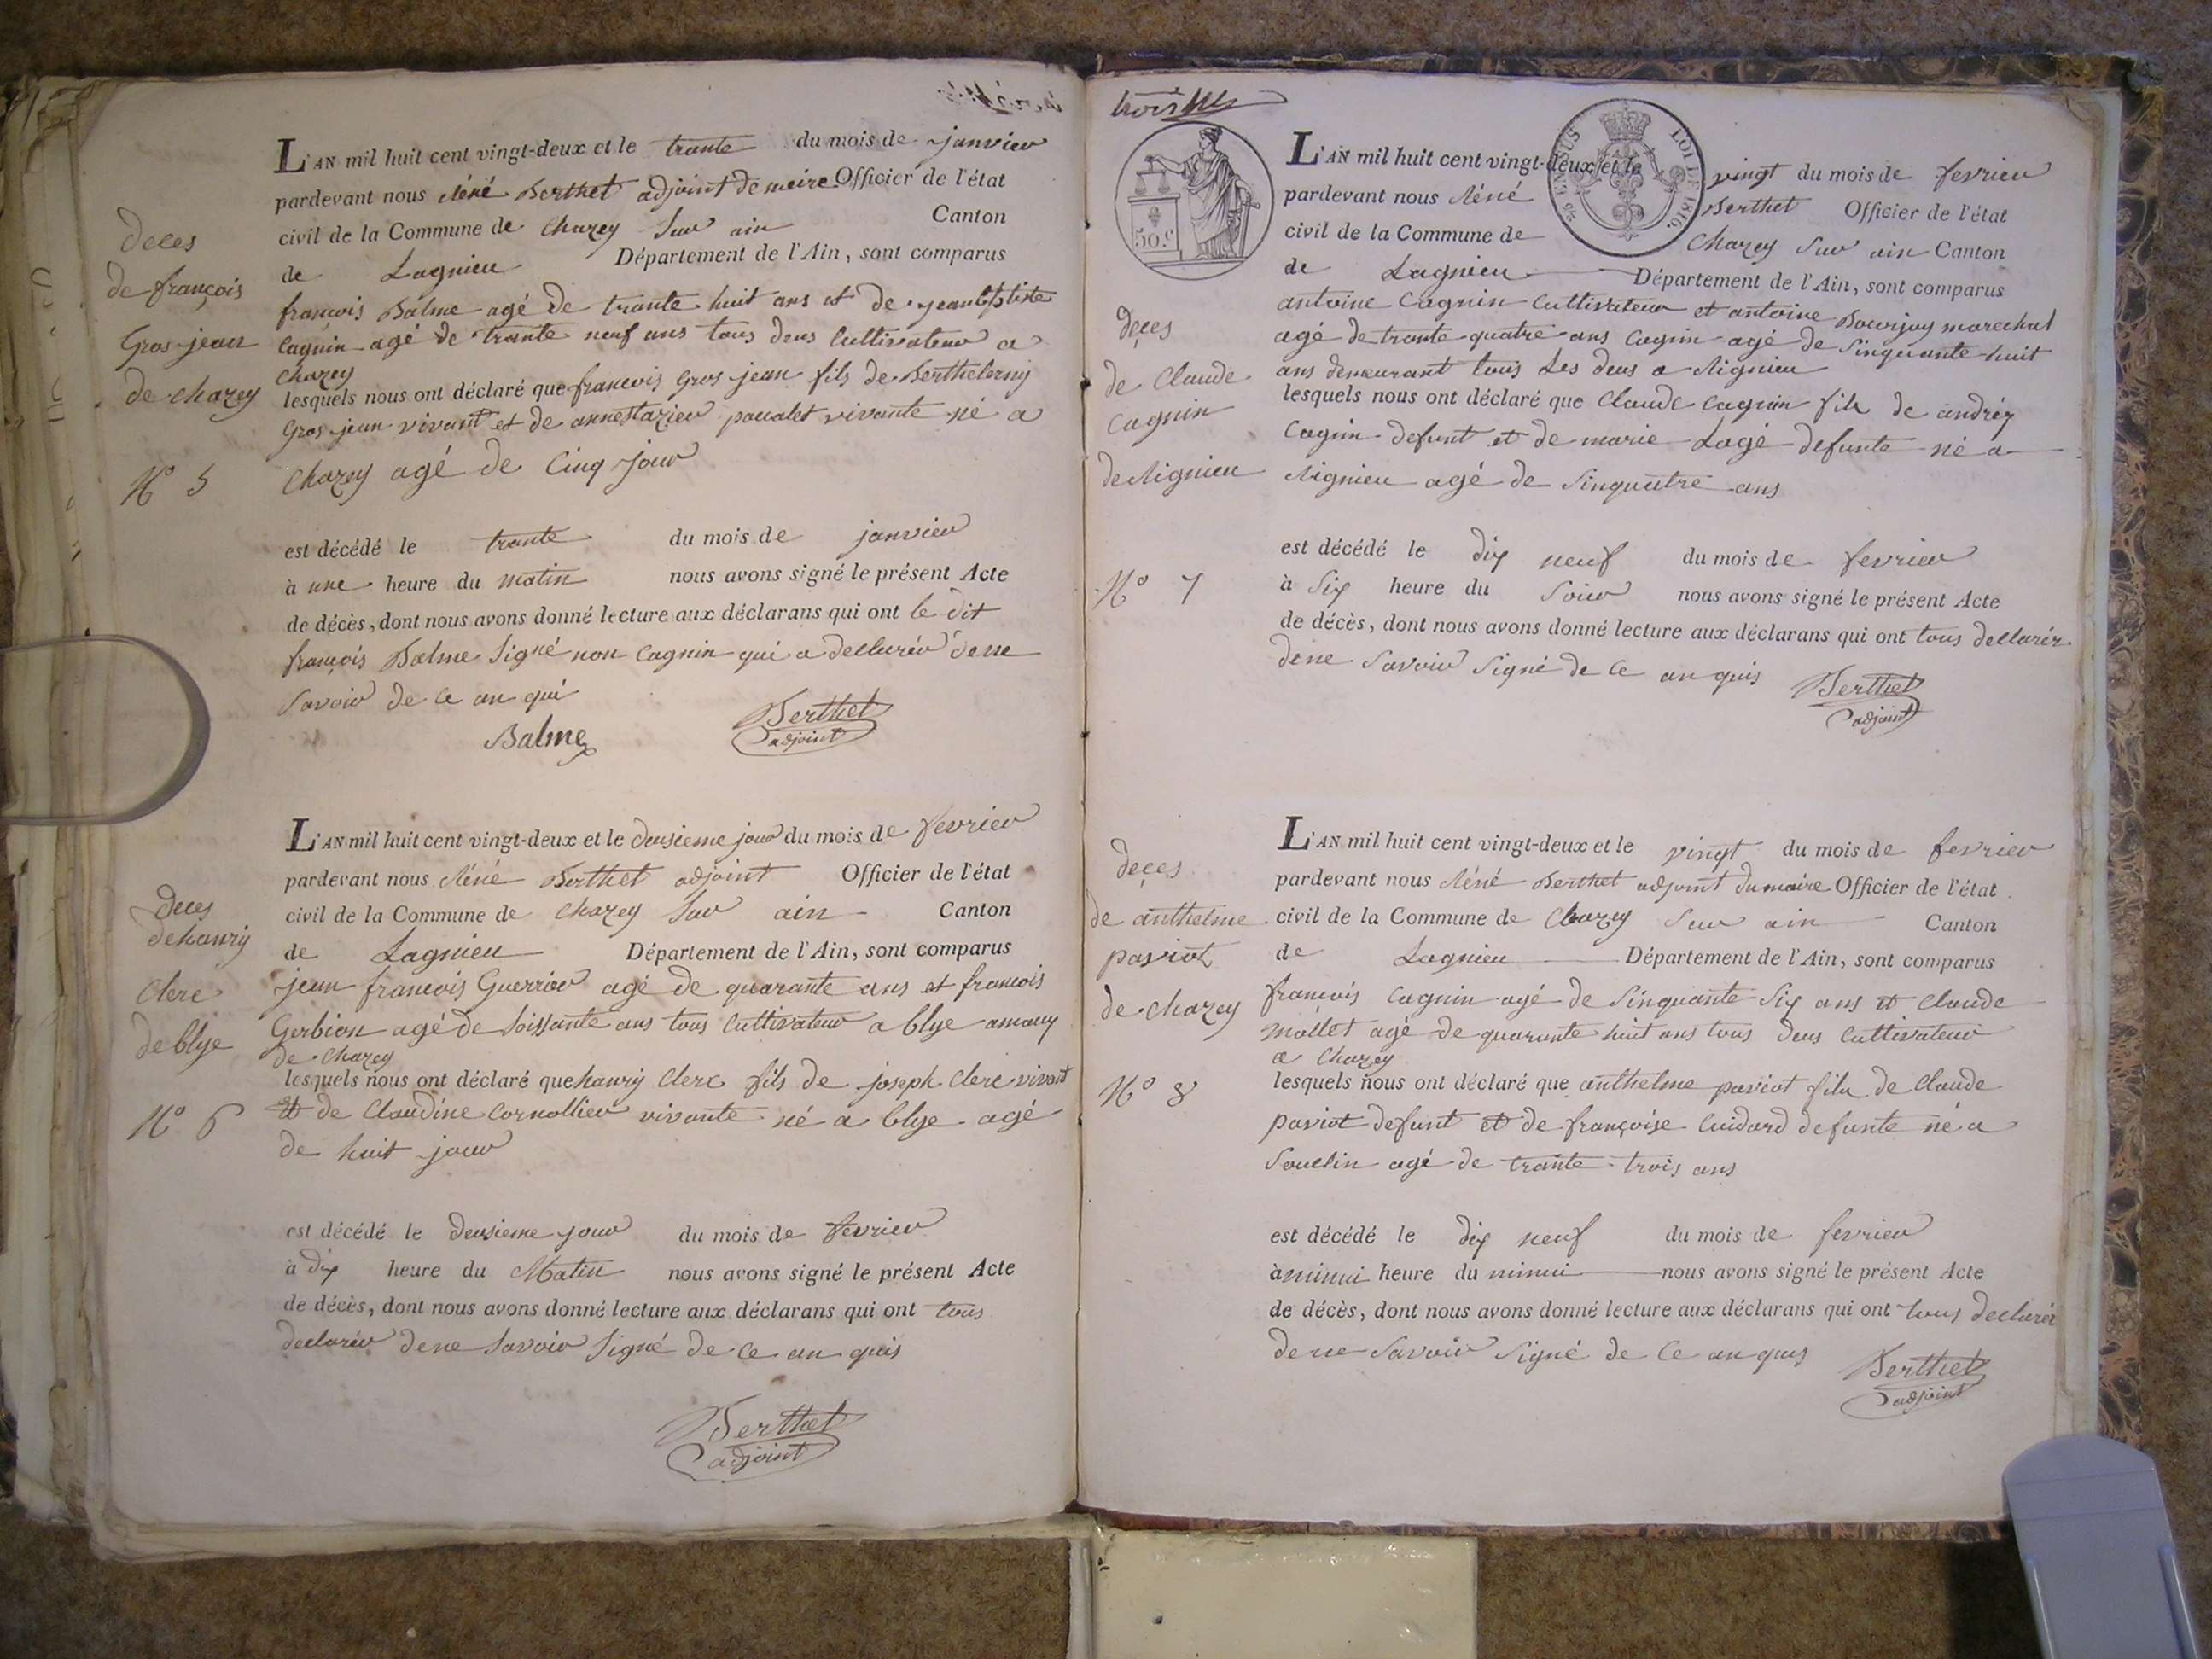 L'AN mil huit cent vingt-deux et le trante du mois de janvier
pardevant nous Réné Berthet adjoint de meire Officier de l'état
civil de la Commune de Chazey Sur ain Canton
de Lagnieu Département de l'Ain, sont comparus
françois Balme agé de trante huit ans et de jeanbptiste
Cagnin agé de trante neuf ans tous deus Cultivateur a
Chazey
lesquels nous ont déclaré que françois Gros jean fils de Berthelemy
Gros jean vivant et de vivante né a
Chazey agé de Cinq jour
est décédé le trante du mois de janvier
à une heure du matin nous avons signé le présent Acte
de décès, dont nous avons donné lecture aux déclarans qui ont le dit
françois Balme Signé non Cagnin qui a declarér dene
Savoir de Ce an qui
Balme
Berthet
adjoint
deces
de françois
Gros jean
de chazey
N° 5
L'AN mil huit cent vingt-deux et le deusieme jour du mois de fevrier
pardevant nous Réné Berthet adjoint Officier de l'état
civil de la Commune de Chazey Sur ain Canton
de Lagnieu Département de l'Ain, sont comparus
jean françois Guerrier agé de quarante ans et françois
Gerbion agé de Soissante ans tous Cultivateur a blye
de Chazey
lesquels nous ont déclaré que hanry Clerc fils de joseph Clerc vivant
et de Claudine Cornollier vivante né a blye agé
de huit jour
est décédé le deusieme jour du mois de fevrier
à dix heure du Matin nous avons signé le présent Acte
de décès, dont nous avons donné lecture aux déclarans qui ont tous
declarér dene Savoir Signé de Ce an quis
Berthet
adjoint
deces
de hanry
Clerc
de blye
N° 6
trois
50.c
LOI DE 1816.
L'AN mil huit cent vingt-deux et le vingt du mois de fevrier
pardevant nous Réné Berthet Officier de l'état
civil de la Commune de Chazey Sur ain Canton
de Lagnieu Département de l'Ain, sont comparus
antoine Cagnin Cultivateur et antoine Bourjay marechal
agé de trante quatre ans Cagnin agé de Sinquante huit
ans demeurant tous Les deus a Rignieu
lesquels nous ont déclaré que Claude Cagnin fils de andréz
Cagnin defunt et de marie Lagé defunte né a
Rignieu agé de Sinquatre ans
est décédé le dix neuf du mois de fevrier
à Six heure du Soir nous avons signé le présent Acte
de décès, dont nous avons donné lecture aux déclarans qui ont tous declarér
dene Savoir Signé de Ce an quis
Berthet
adjoint
deçes
de Claude
Cagnin
de Rignieu
N° 7
L'AN mil huit cent vingt-deux et le vingt du mois de fevrier
pardevant nous Réné Berthet adjoint dumaire Officier de l'état
civil de la Commune de Chazey Sur ain Canton
de Lagnieu Département de l'Ain, sont comparus
françois Cagnin agé de Sinquante Six ans et Claude
Mollet agé de quarante huit ans tous deus Cultivateur
a Chazey
lesquels nous ont déclaré que anthelme paviot fils de Claude
paviot defunt et de françoise Cuidard defunte né a
Souclin agé de trante trois ans
est décédé le dix neuf du mois de fevrier
à minui heure du minui nous avons signé le présent Acte
de décès, dont nous avons donné lecture aux déclarans qui ont tous declarér
de ne Savoir Signé de Ce an quis
Berthet
adjoint
deçes
de anthelme
paviot
de chazey
N° 8